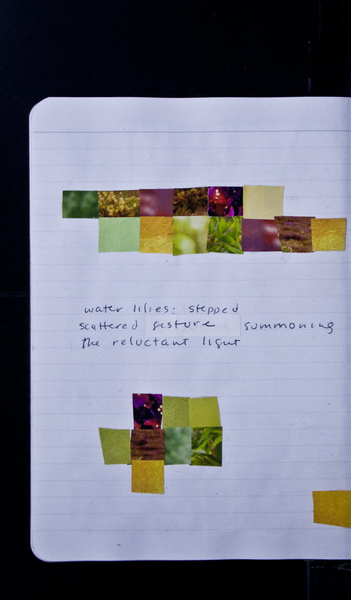 water lilies: stepped
scattered gesture summoning
the reluctant light